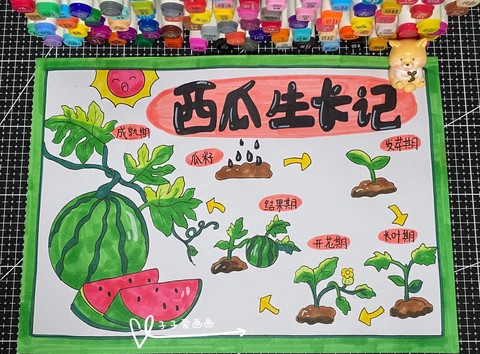 西瓜生长记
成熟期
瓜籽
发芽期
结果期
开花期
长叶期
子子爱画画